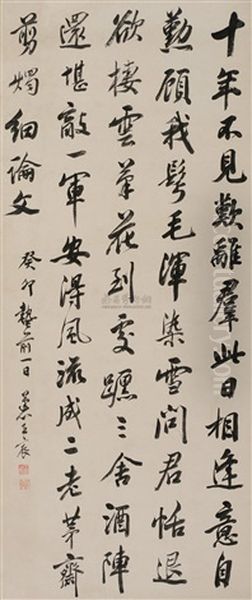 十年不見歎離羣此日相逢意自
勤顧我髩毛渾染雪問君恬退
欲棲雲筆花到處驅三舍酒陣
還堪敵一軍安得風流成二老茅齋
剪燭細論文
癸卯蟄前一日
王宸